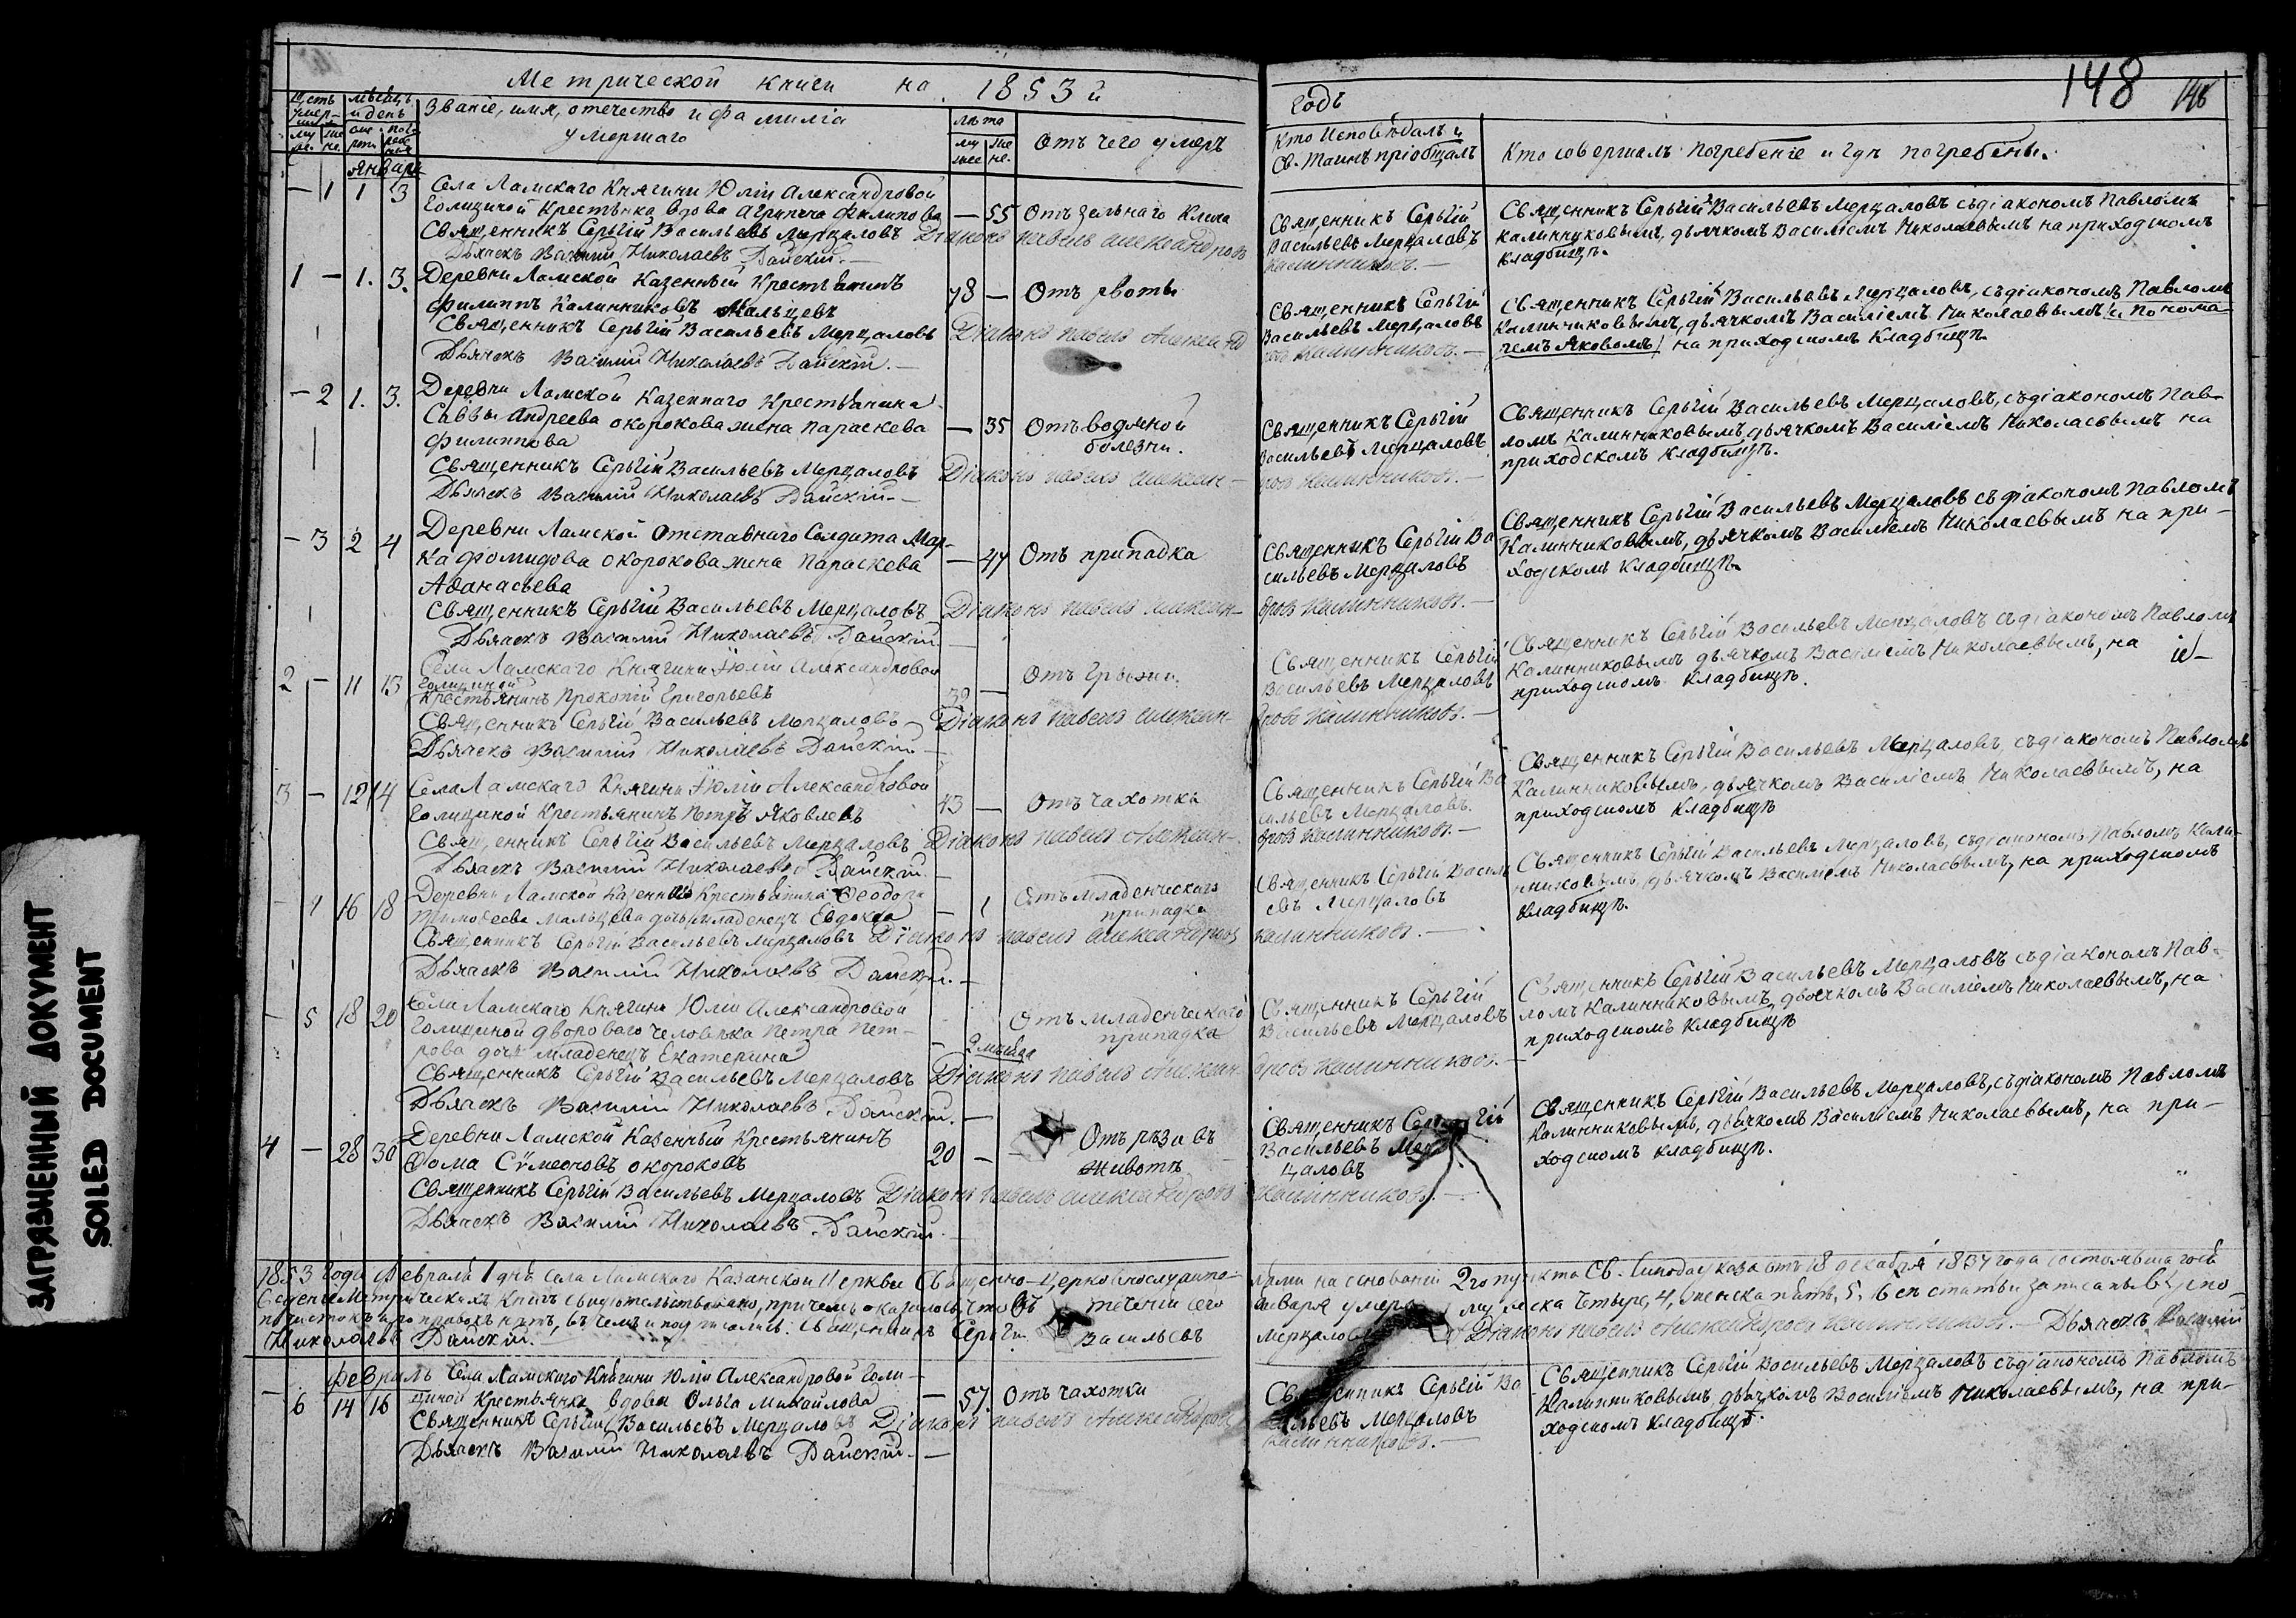 Метрической книги на 1853й годъ
148
148
Щетъ умерших
муж. жен.
Мѣсяцъ и день
Званіе, имя, отечество и фамилія умершаго
лѣта
муж. жен.
Отъ чего умеръ
Кто Исповѣдалъ и Св. Таинъ пріобщалъ
Кто совершалъ погребеніе и гдѣ погребены.
Январь
— 1 1 3
Села Ламскаго Княгини Юліи Александровой
Голицыной Крестьянка вдова Агрипина Филипова
— 55 Отъ
Священникъ Сергій
Васильевъ Мерцаловъ
Священникъ Сергій Васильевъ Мерцаловъ съ діакономъ Павломъ
Калинниковымъ, дьячкомъ Василіемъ Николаевымъ на приходскомъ
кладбищѣ.
Священникъ Сергій Васильевъ Мерцаловъ Діаконъ Павелъ Александровъ Калинниковъ. —
Дьячекъ Василий Николаевъ Райскій. —
1 — 1. 3.
Деревни Ламской Казенный Крестьянинъ
Филиппъ Калинниковъ Мальцевъ
78 — Отъ рвоты
Священникъ Сергій
Васильевъ Мерцаловъ
Священникъ Сергій Васильевъ Мерцаловъ, съ діакономъ Павломъ
Калинниковымъ, дьячкомъ Василіемъ Николаевымъ (и понома-
ремъ Яковомъ) на приходскомъ кладбищѣ
Священникъ Сергій Васильевъ Мерцаловъ Діаконъ Павелъ Александ
ровъ Калинниковъ. —
Дьячекъ Василий Николаевъ Райскій. —
— 2 1. 3.
Деревни Ламской Казеннаго Крестьянина
Саввы Андреева Окорокова жена Параскева
Филиппова
— 35 Отъ водяной
болезни.
Священникъ Сергій
Васильевъ Мерцаловъ
Священникъ Сергій Васильевъ Мерцаловъ, съ діакономъ Пав-
ломъ Калинниковымъ, дьячкомъ Василіемъ Николаевымъ на
приходскомъ кладбищѣ.
Священникъ Сергій Васильевъ Мерцаловъ Діаконъ Павелъ Алексан-
дровъ Калинниковъ. —
Дьячекъ Василий Николаевъ Райскій. —
— 3 2 4
Деревни Ламской Отставнаго Солдата Мар-
ка Фомидова Окорокова жена Параскева
Аѳанасьева
— 47 Отъ припадка
Священникъ Сергій Ва
сильевъ Мерцаловъ
Священникъ Сергій Васильевъ Мерцаловъ съ діакономъ Павломъ
Калинниковымъ, дьячкомъ Василіемъ Николаевымъ на при-
ходскомъ кладбищѣ
Священникъ Сергій Васильевъ Мерцаловъ Діаконъ Павелъ Алексан-
дровъ Калинниковъ. —
Дьячекъ Василий Николаевъ Райскій —
2 — 11 13
Села Ламскаго Княгини Юліи Александровой
Голицыной
Крестьянинъ Прокопій Григорьевъ
39 — Отъ Грыжи.
Священникъ Сергій
Васильевъ Мерцаловъ
Священникъ Сергій Васильевъ Мерцаловъ съ діакономъ Павломъ
Калинниковымъ дьячкомъ Василіемъ Николаевымъ, на
приходскомъ кладбищѣ.
Священникъ Сергій Васильевъ Мерцаловъ Діаконъ Павелъ Алексан-
дровъ Калинниковъ. —
Дьячекъ Василий Николаевъ Райскій —
3 — 12 14
Села Ламскаго Княгини Юліи Александровой
Голицыной Крестьянинъ Петръ Яковлевъ
43 — Отъ чахотки
Священникъ Сергій Ва
сильевъ Мерцаловъ.
Священникъ Сергій Васильевъ Мерцаловъ, съ діакономъ Павломъ
Калинниковымъ, дьячкомъ Василіемъ Николаевымъ, на
приходскомъ кладбищѣ
Священникъ Сергій Васильевъ Мерцаловъ Діаконъ Павелъ Алексан-
дровъ Калинниковъ. —
Дьячекъ Василий Николаевъ Райскій. —
— 4 16 18
Деревни Ламской Казеннаго Крестьянина Ѳеодора
Тимоѳеева Мальцева дочь младенецъ Евдокія
— 1 Отъ младенческаго
припадка
Священникъ Сергій Василь
евъ Мерцаловъ
Священникъ Сергій Васильевъ Мерцаловъ, съ діакономъ Павломъ Кали-
нниковымъ, дьячкомъ Василіемъ Николаевымъ, на приходскомъ
кладбищѣ.
Священникъ Сергій Васильевъ Мерцаловъ Діаконъ Павелъ Александровъ Калинниковъ. —
Дьячекъ Василий Николаевъ Райскій. —
— 5 18 20
Села Ламскаго Княгини Юліи Александровой
Голицыной двороваго человѣка Петра Пет-
рова дочь младенецъ Екатерина
— 2 мѣсяца
Отъ младенческаго
припадка
Священникъ Сергій
Васильевъ Мерцаловъ
Священникъ Сергій Васильевъ Мерцаловъ съ діакономъ Пав-
ломъ Калинниковымъ, дьячкомъ Василіемъ Николаевымъ, на
приходскомъ кладбищѣ
Священникъ Сергій Васильевъ Мерцаловъ Діаконъ Павелъ Алексан-
дровъ Калинниковъ. —
Дьячекъ Василий Николаевъ Райскій. —
4 — 28 30
Деревни Ламской Казенный Крестьянинъ
Ѳома Сѵмеоновъ Окороковъ
20 — Отъ рѣза въ
животѣ
Священникъ Сергій
Васильевъ Мер
цаловъ
Священникъ Сергій Васильевъ Мерцаловъ, съ діакономъ Павломъ
Калинниковымъ, дьячкомъ Василіемъ Николаевымъ, на при-
ходскомъ кладбищѣ.
Священникъ Сергій Васильевъ Мерцаловъ Діаконъ Павелъ Александровъ Калинниковъ. —
Дьячекъ Василий Николаевъ Райскій. —
1853 года Февраля 1 дня села Ламскаго Казанской Церкви Священно-церковнослужите-лями на основаніи 2го пункта Св. Синода указа отъ 18 декабря 1837 года
сіе Метрическихъ Книгъ свидетельствовано, причемъ оказалось, что въ теченіи сего Января умерло мужеска четыре, 4, женска пять, 5. всѣ статьи записаны
почистокъ и поправокъ нѣтъ, въ чемъ и подписались: Священникъ Сергій Васильевъ Мерцаловъ Діаконъ Павелъ Александровъ Калинниковъ. — Дьячекъ Василий
Николаевъ Райскій.
Февраль
— 6 14 16
Села Ламскаго Княгини Юліи Александровой Голи-
цыной Крестьянка вдова Ольга Михайлова
— 57. Отъ чахотки
Священникъ Сергій Ва
сильевъ Мерцаловъ
Священникъ Сергій Васильевъ Мерцаловъ съ діакономъ Павломъ
Калинниковымъ, дьячкомъ Василіемъ Николаевымъ, на при-
ходскомъ кладбищѣ.
Священникъ Сергій Васильевъ Мерцаловъ Діаконъ Павелъ Александровъ
Калинниковъ. —
Дьячекъ Василий Николаевъ Райскій. —
ЗАГРЯЗНЕННЫЙ ДОКУМЕНТ
SOILED DOCUMENT